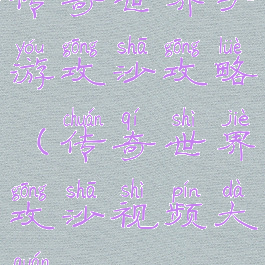 传奇世界手
yóu gōng shā gōng lüè
游攻沙攻略
chuán qí shì jiè
（传奇世界
gōng shā shì pín dà
攻沙视频大
quán